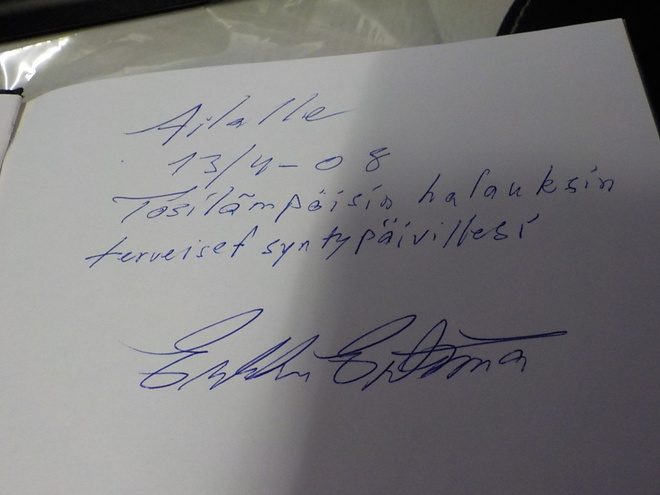 Ailalle
13/4-08
Tosilämpöisin halauksin
terveiset syntypäivillesi